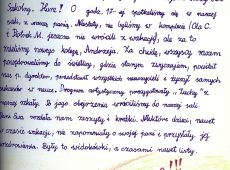 Szkolny. Hura! O godz. 17-ej spotkaliśmy się w naszej
sali, z naszą panią. Niestety, nie byliśmy w komplecie (Ola C.
i Patryk M. jeszcze nie wrócili z wakacji), ale za to
mieliśmy nowego kolegę, Andrzeja. Za chwilę, wszyscy razem
powędrowaliśmy do świetlicy, gdzie starym zwyczajem, powitał
nas p. dyrektor, przedstawił wszystkich nauczycieli i życzył samych
sukcesów w nauce. Program artystyczny przygotowały "Zuchy" z
naszej szkoły. Po jego obejrzeniu wróciliśmy do naszej sali.
Pani Ewa rozdała nam zeszyty i kredki. Niektóre dzieci, nawet
w czasie wakacji, nie zapomniały o swojej pani i przysłały jej
pozdrowienia. Były to widokówki, a czasami nawet listy.
!!!